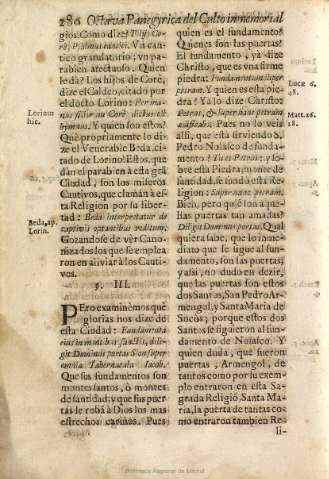 280 Octava Panegyrica del Culto inmemorial
gios. Como dize? Filij Co-
rè, Psalmus cantici. Va can-
tico gratulatorio; vn pa-
rabien afectuoso. Quien
le dà? Los hijos de Corè,
dize el Caldeo, citado por
el docto Lorino: Per ma-
nus
Lorinus
hic.
Y quien son estos?
Què propriamente lo di-
ze el Venerable Beda, ci-
tado de Lorino! Estos, que
dan el parabien à esta grã
Ciudad, son los miseros
Cautivos, que claman à es-
ta Religion por su liber-
tad: Beda interpretatur de
captivis optantibus reditum.
Beda, ap.
Lorin.
Gozandose de vèr Cano-
nizados los que se emplea-
ron en aliviar à los Cauti-
vos.
§. III.
PEro examinèmos què
glorias nos dize de
esta Ciudad: Fundamenta
eius in montibus sanctis, dili-
git Dominus portas Sion super
omnia Tabernacula Iacob.
Que sus fundamentos son
montes santos, ò montes
de santidad; y que sus puer-
tas le robã à Dios los mas
estrechos cariños. Pues
quien es el fundamento?
Quienes son las puertas?
El fundamento, yà dize
Christo, que es vna firme
piedra: Fundamentum super
petram. Y quien es esta pie-
dra? Yà lo dize Christo:
Lucæ 6.
48.
Petrus, & super hanc petram
ædificabo. Pues no lo veis
Matt. 16.
18.
alli, que està sirviendo S.
Pedro Nolasco de funda-
mento? Tu es Petrus; y so-
bre esta Piedra, monte de
santidad, se funda esta Re-
ligion: Super hanc petram.
Bien, pero què son aque-
llas puertas tan amadas?
Diligit Dominus portas. Qual-
quiera sabe, que lo inme-
diato que se sigue al fun-
damento, son las puertas,
y assi, no dudo en dezir,
que las puertas son estos
dos Santos, San Pedro Ar-
mengol, y Santa Maria de
Socòs; porque estos dos
Santos se siguieron al fun-
damento de Nolasco. Y
quien duda, que fueron
puertas, Armengol, de
tantos como por su exem-
plo entraron en esta Sa-
grada Religiõ? Santa Ma-
ria, la puerta de tantas co-
mo entraron tambien Re-
li-
Biblioteca Regional de Madrid